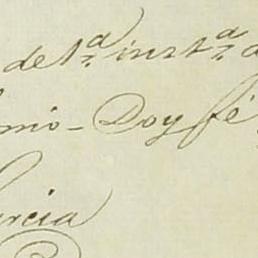 de 1ª instª d
nio- Doy fé
arcia